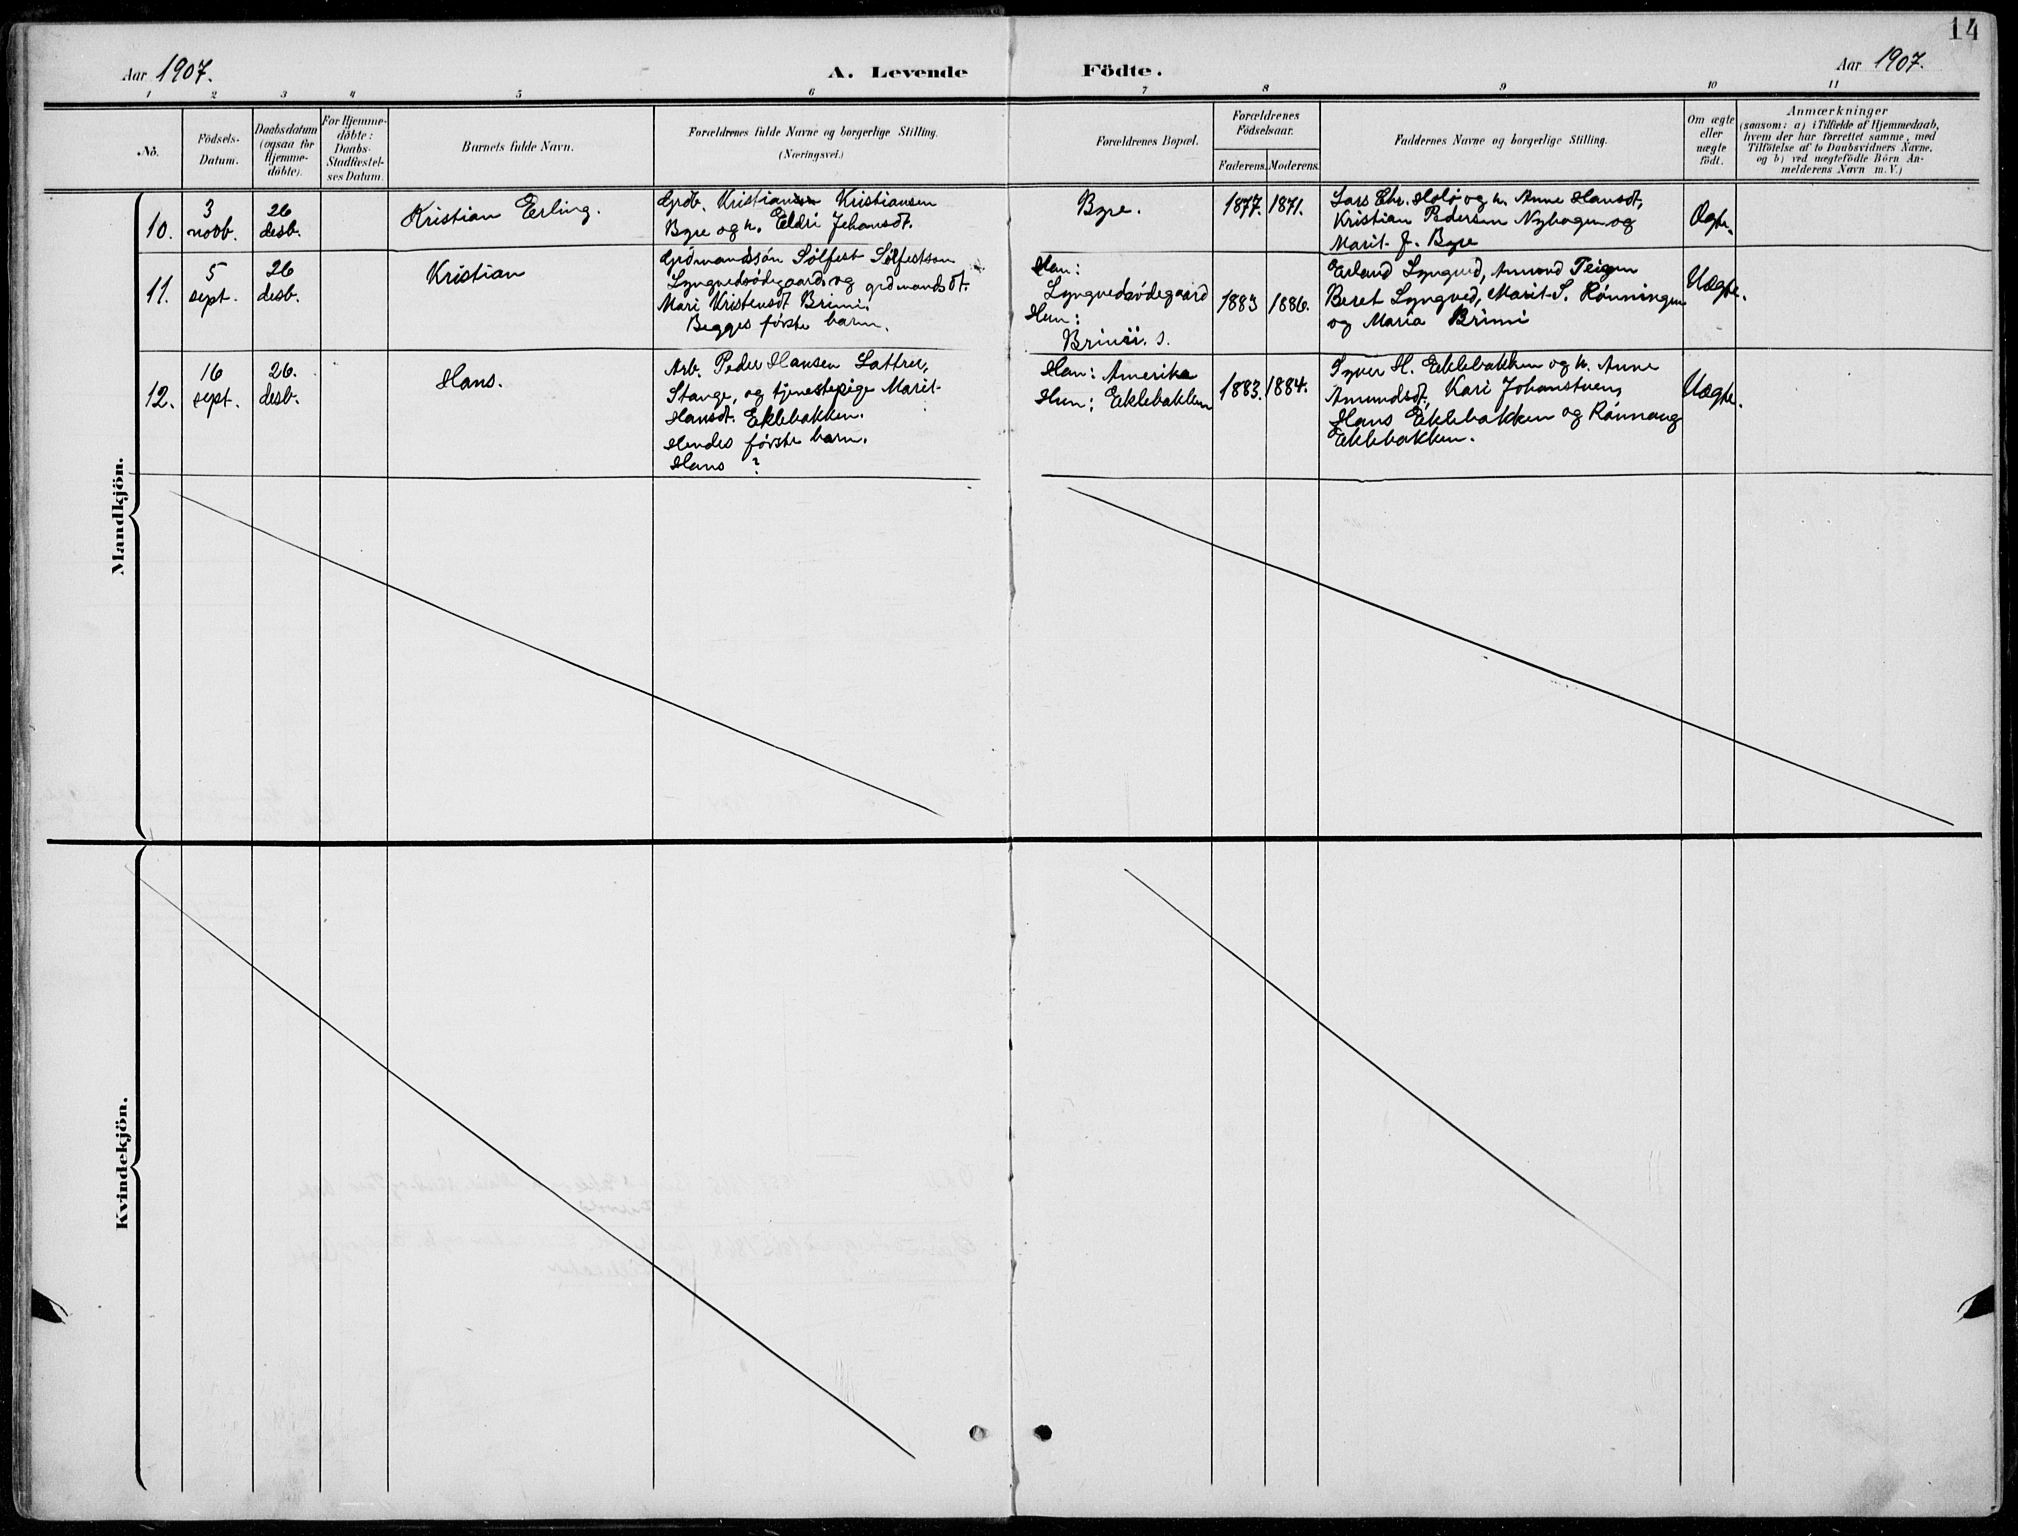 14
Aar 1907.
A. Levende Födte.
Aar 1907.
1 2 3 4 5 6 7 8 9 10 11
No.
Födsels-
Datum.
Daabsdatum
(ogsaa for
Hjemme-
döbte).
For Hjemme-
döbte:
Daabs-
Stadfæstel-
ses Datum.
Barnets fulde Navn.
Forældrenes fulde Navne og borgerlige Stilling.
(Næringsvei.)
Forældrenes Bopæl.
Forældrenes
Födselsaar.
Faderens. Moderens.
Faddernes Navne og borgerlige Stilling.
Om ægte
eller
uægte
födt.
Anmærkninger
(saasom: a) i Tilfælde af Hjemmedaab,
hvem der har forrettet samme, med
Tilföielse af to Daabsvidners Navne.
og b) ved uægtefödte Börn An-
melderens Navn m. V.)
Mandkjön.
10.
3
novb.
26
desb.
Kristian Erling.
Grdb. Kristian Kristiansen
Byre og h. Eldri Johansdt.
Byre.
1877. 1871.
Lars Chr. Holö og h. Anne Hansdt,
Kristian Pedersen Nyhagen og
Marit J. Byre
Ægte.
11.
5
sept.
26
desb.
Kristian
Grdmandssön Sölfest Sölfestsen
Lyngvedsödegaard og grdmandsdt.
Mari Kristensdt Brimi.
Begges første barn.
Han:
Lyngvedsödegaard
Hun:
Brimi. s.
1883 1886.
Erland Lyngved, Amund Teigen
Beret Lyngved, Marit S. Rönningen
og Maria Brimi
Uægte.
12.
16
sept.
26.
desb.
Hans.
Arb. Peder Hansen
Stange, og tjenestepige Marit
Hansdt. Eklebakken.
Hendes første barn.
Hans ?
Han: Amerika
Hun: Eklebakken
1883. 1884.
Syver H. Eklebakken og h. Anne
Amundsdt, Kari Johanstuen,
Hans Eklebakken og Rönnaug
Eklebakken.
Uægte.
Kvindekjön.